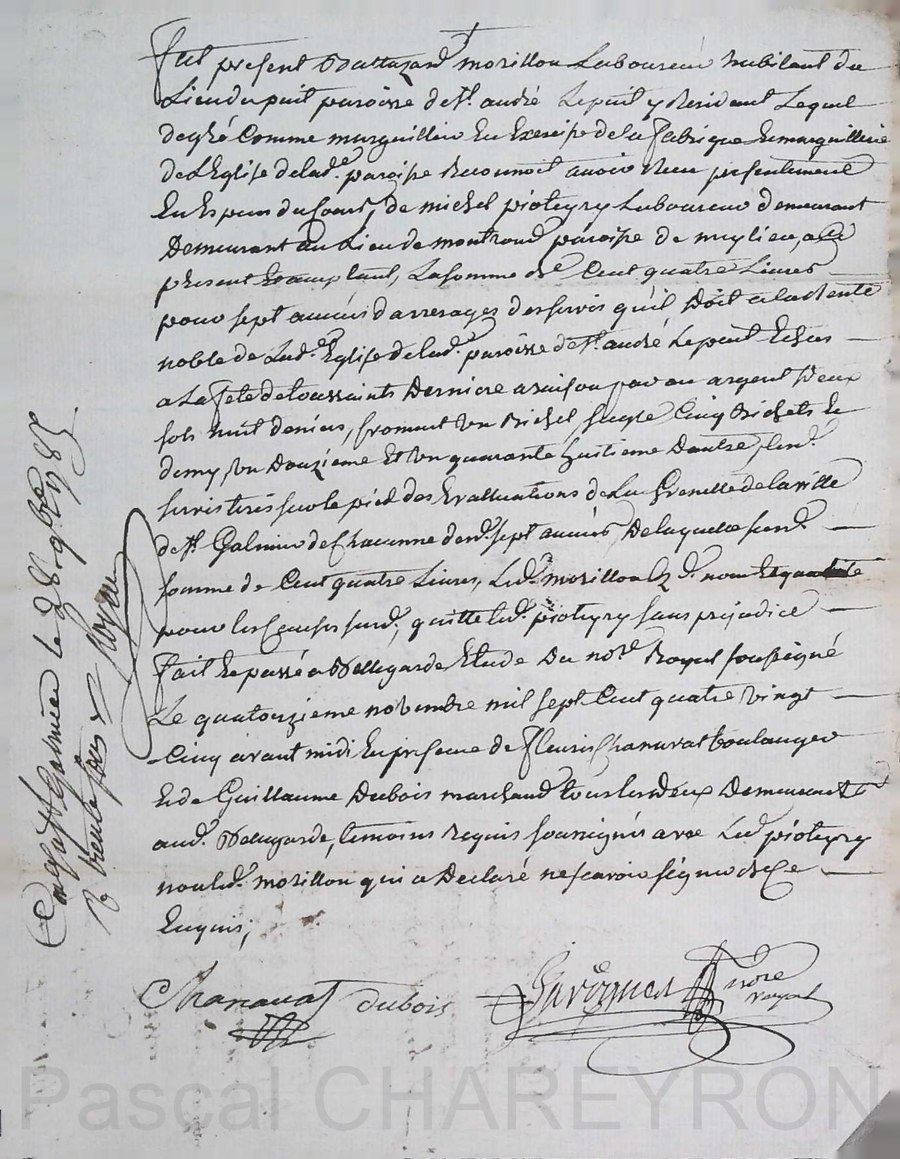 Fut présent Baltazard morillon Laboureur habitant du
Lieu du puit paroisse de St. andré Lepuit y Résidant Lequel
de gré Comme marguillier En Exercise de la fabrique Et marguillerie
de L'Eglise de lad.e paroisse Reconnoit avoir Reçu présentement
En Espèces du Cours, de michel pioteyry Laboureur demeurant
Demeurant au Lieu de montrond paroisse de meylieu, a Ce
présent Et acceptant, La somme de Cent quatre Livres
pour sept années d'arrerages des servis qu'il Doit a la Rente
noble de Lad.e Eglise de lad.e paroisse de St. andré Le puit Echus
a La fête de toussaints Derniere a raison par an argent Deux
sols huit deniers, froment un Bichet, seigle Cinq Bichets Et
demy, un Douzieme Et un quarante huitieme Dautre,
servis tirés sur le pied des Evalluations de La Grenette de la ville
de St. Galmier de Chacunne desd. sept années De laquelle surd.
somme de Cent quatre Livres, Led. morillon Esd. nom
pour les Causes surd., quitte led. pioteyry sans préjudice
fait Et passé a Bellegarde Etude Du nore Royal soussigné
Le quatorzieme novembre mil sept Cent quatre vingt
Cinq avant midi En présence de fleuris Chanavat boulanger
Et de Guillaume Dubois marchand tous les deux Demeurants
aud. Bellegarde, temoins Requis soussignés avec Led. pioteyry
non led. morillon qui a Déclaré ne scavoir signer de Ce
Enquis,
Chanavat dubois nore
royal
Con. a St Galmier le 28 9bre 1785
R trente sous